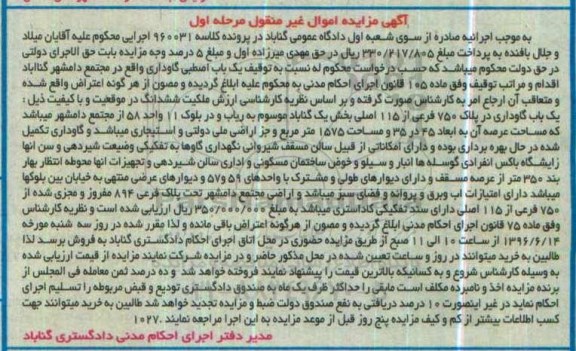 آگهی مزایده اموال غیر منقول مرحله اول
به موجب اجرائیه صادره از سوی شعبه اول دادگاه عمومی گناباد در پرونده کلاسه ۹۶۰۰۳۱ اجرایی محکوم علیه آقایان میلاد
و جلال بافنده به پرداخت مبلغ ۳۳۰/۲۱۷/۸۰۵ ریال در حق مهدی میرزاده اول و مبلغ ۵ درصد وجه مزایده بابت حق الاجرای دولتی
در حق دولت محکوم میباشد که حسب درخواست محکوم له نسبت به توقیف یک باب اصطبل گاوداری واقع در مجتمع دامشهر گناباد
اقدام و مراتب توقیف وفق ماده ۱۰۵ قانون اجرای احکام مدنی به محکوم علیه ابلاغ گردیده و مصون از هر گونه اعتراض واقع شده
و متعاقب آن ارجاع امر به کارشناس صورت گرفته و بر اساس نظریه کارشناسی ارزش ملکیت ششدانگ در موقعیت و با کیفیت ذیل :
یک باب گاوداری در پلاک ۷۵۰ فرعی از ۱۱۵ اصلی بخش یک گناباد موسوم به ریاب و در بلوک ۱۱ واحد ۵۸ از مجتمع دامشهر میباشد
که مساحت عرصه آن به ابعاد ۴۵ در ۳۵ و مساحت ۱۵۷۵ متر مربع و جز اراضی ملی دولتی و استیجاری میباشد و گاوداری تکمیل
شده در حال بهره برداری بوده و دارای امکاناتی از قبیل سالن مسقف شیروانی نگهداری گاوها به تفکیک وضعیت شیردهی و سن آنها
زایشگاه باکس انفرادی گوسله ها انبار و سیلو و حوض ساختمان مسکونی و اداری سالن شیردهی و تجهیزات آنها محوطه انتظار بهار
بند ۳۵۰ متر از عرصه مسقف و دارای دیوارهای طولی و مشترک با واحدهای ۵۹ و ۵۷ و دیوارهای عرضی منتهی به خیابان بین بلوکها
میباشد دارای امتیازات آب وبرق و پروانه و فضای سبز میباشد و اراضی مجتمع دامشهر تحت پلاک فرعی ۸۹۴ مفروز و مجزی شده از
۷۵۰ فرعی از ۱۱۵ اصلی دارای سند تفکیکی کاداستری میباشد به مبلغ ریال ارزیابی شده است و نظریه کارشناس
وفق ماده ۷۵ قانون اجرای احکام مدنی ابلاغ گردیده و مصون از هرگونه اعتراض باقی مانده و لذا مقرر شده در روز سه شنبه مورخه
۱۳۹۶/۶/۱۴ از ساعت ۱۰ الی ۱۱ صبح از طریق مزایده حضوری در محل اتاق اجرای احکام دادگستری گناباد به فروش برسد لذا
طالبین به خرید میتوانند در روز و ساعت تعیین شده در محل مذکور حاضر و در مزایده شرکت نمایند مزایده از قیمت ارزیابی شده
به وسیله کارشناس شروع و به کسانیکه بالاترین قیمت را پیشنهاد نمایند فروخته خواهد شد و ده درصد ثمن معامله فی المجلس از
برنده مزایده اخذ و نامبرده مکلف است مابقی را حداکثر ظرف یک ماه به صندوق دادگستری تودیع و قبض مربوطه را تسلیم اجرای
احکام نماید در غیر اینصورت ۱۰ درصد دریافتی به نفع صندوق دولت ضبط و مزایده تجدید خواهد شد طالبین به خرید میتوانند جهت
کسب اطلاعات بیشتر از کم و کیف مزایده پنج روز قبل از موعد مزایده به این اجرا مراجعه نمایند .۱۰۲۷
مدیر دفتر اجرای احکام مدنی دادگستری گناباد